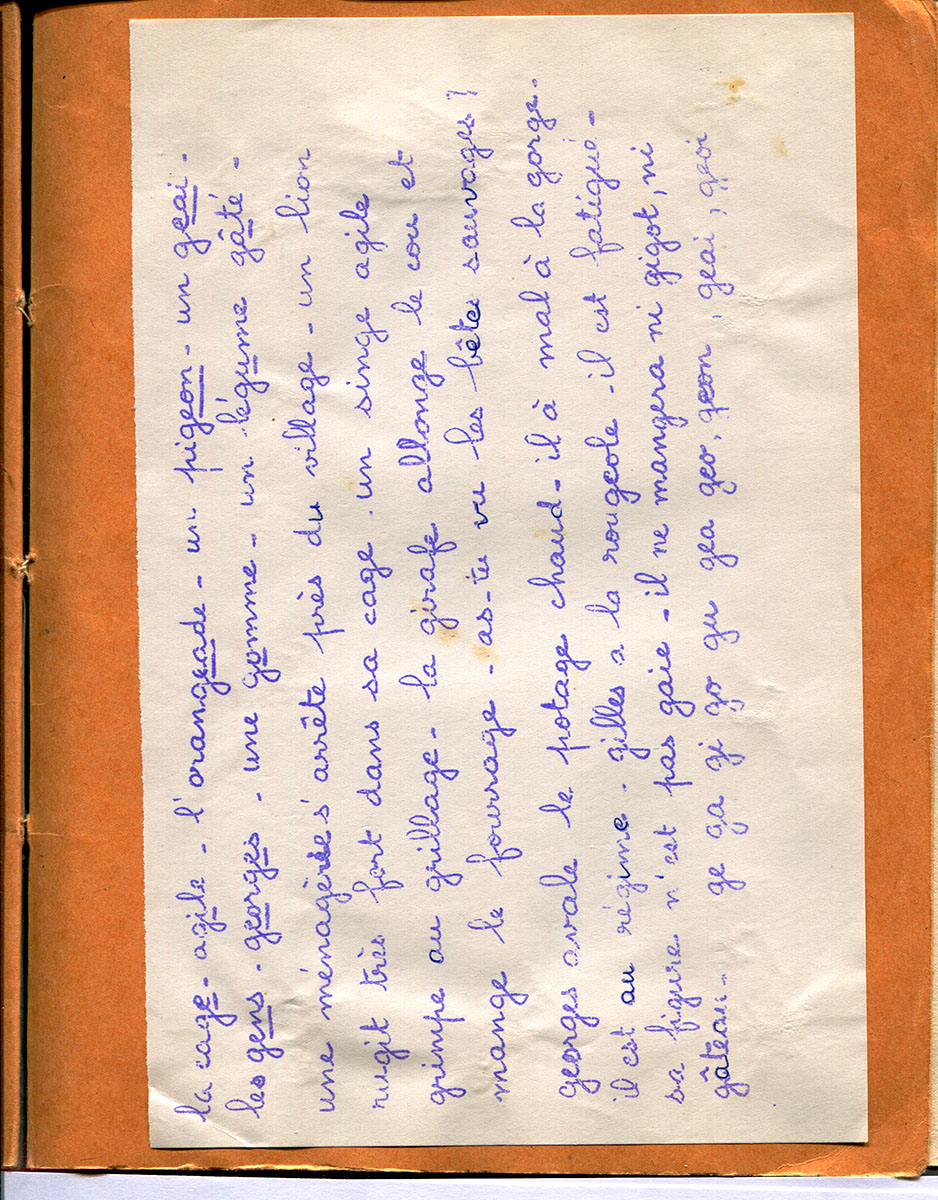 la cage - agile - l'orangeade - un pigeon - un geai -
les gens - georges - une gomme - un légume gâté -
une ménagerie s'arrête près du village - un lion
rugit très fort dans sa cage . un singe agile
grimpe au grillage - la girafe allonge le cou et
mange le fourrage - as-tu vu les bêtes sauvages ?
georges avale le potage chaud - il à mal à la gorge .
il est au régime . gilles a la rougeole - il est fatigué -
sa figure n'est pas gaie - il ne mangera ni gigot, ni
gâteau - ge ga gi go gu gea geo, geon, geai, geoi